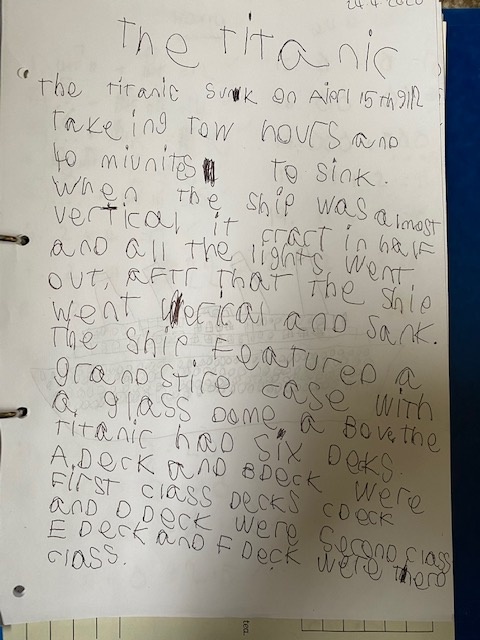 24.4.2020
the titanic
the titanic sunk on Aipri 15th 912
Takeing Tow hours and
40 miunites To sink.
when the ship was almost
vertical it cract in half
and all the lights went
out, aftr that the ship
went verical and sank.
The ship Featured a
grand stire case with
a glass Dome a Bove. the
Titanic had six Decks.
A Deck and B Deck were
First class Decks C Deck
and D Deck were Second class
E Deck and F Deck were therd
class.
tea.